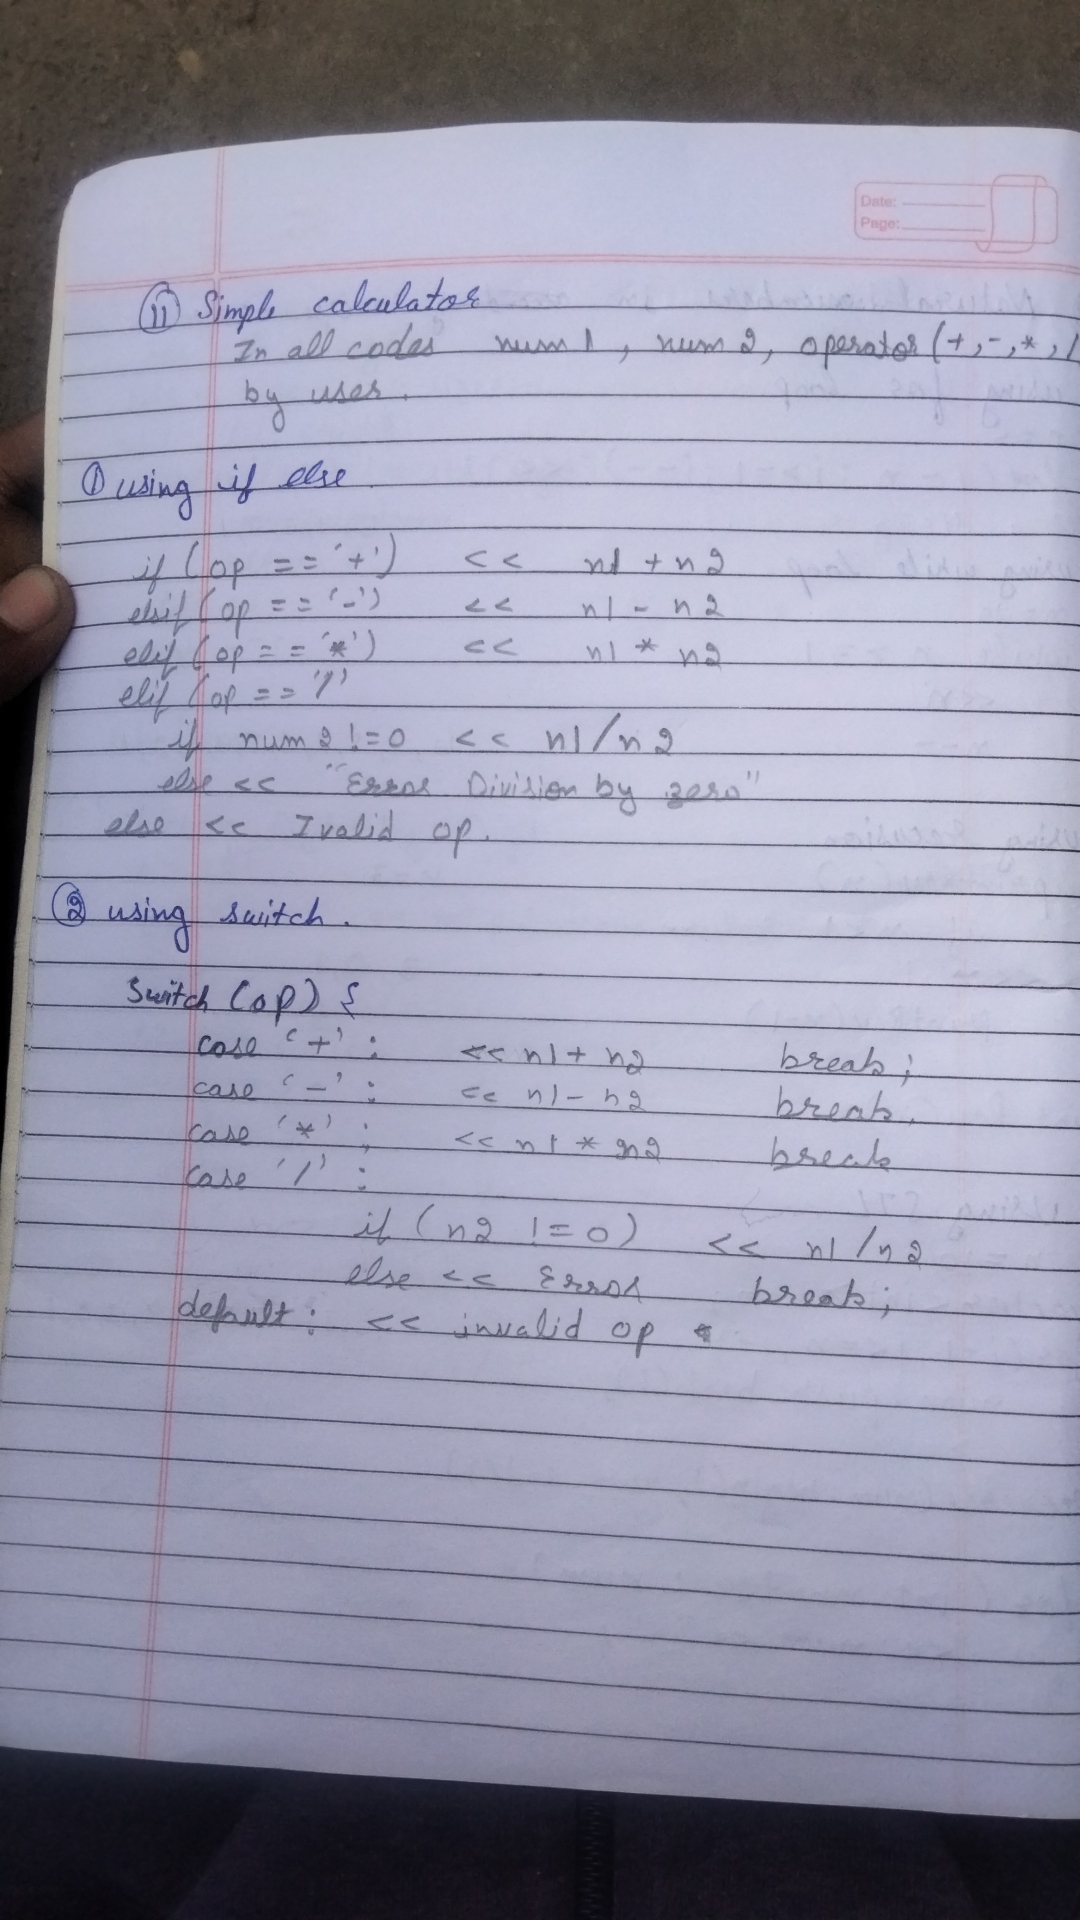 Date:
Page:
(11) Simple calculator
In all codes num1, num2, operator (+,-,*,/
by user.
① using if else
if (op == '+') << n1 + n2
elsif (op == '-') << n1 - n2
elif (op == '*') << n1 * n2
elif (op == '/'
if num2 != 0 << n1/n2
else << "Error Division by zero"
else << Ivalid op.
② using switch.
Switch (op) {
case '+' : << n1 + n2 break;
case '-' : << n1 - n2 break.
case '*' ; << n1 * n2 break
case '/' :
if (n2 != 0) << n1/n2
else << Error break;
default : << invalid op